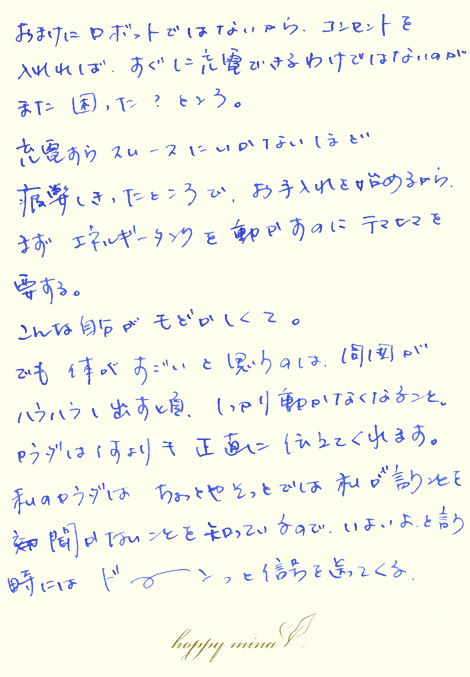 おまけにロボットではないから、コンセントを
入れれば、すぐに充電できるわけではないのが
また困った?ところ。
充電すらスムースにいかないほど
疲弊しきったところで、お手入れを始めるから、
まずエネルギータンクを動かすのにテマヒマを
要する。
こんな自分がもどかしくて。
でも体がすごいと思うのは、周囲が
ハラハラし出す頃、しっかり動かなくなること。
カラダは何よりも正直に伝えてくれます。
私のカラダはちょっとやそっとでは私が言うことを
聞かないことを知っているので、いよいよ、と言う
時にはドーンっと信号を送ってくる。
hoppy mina